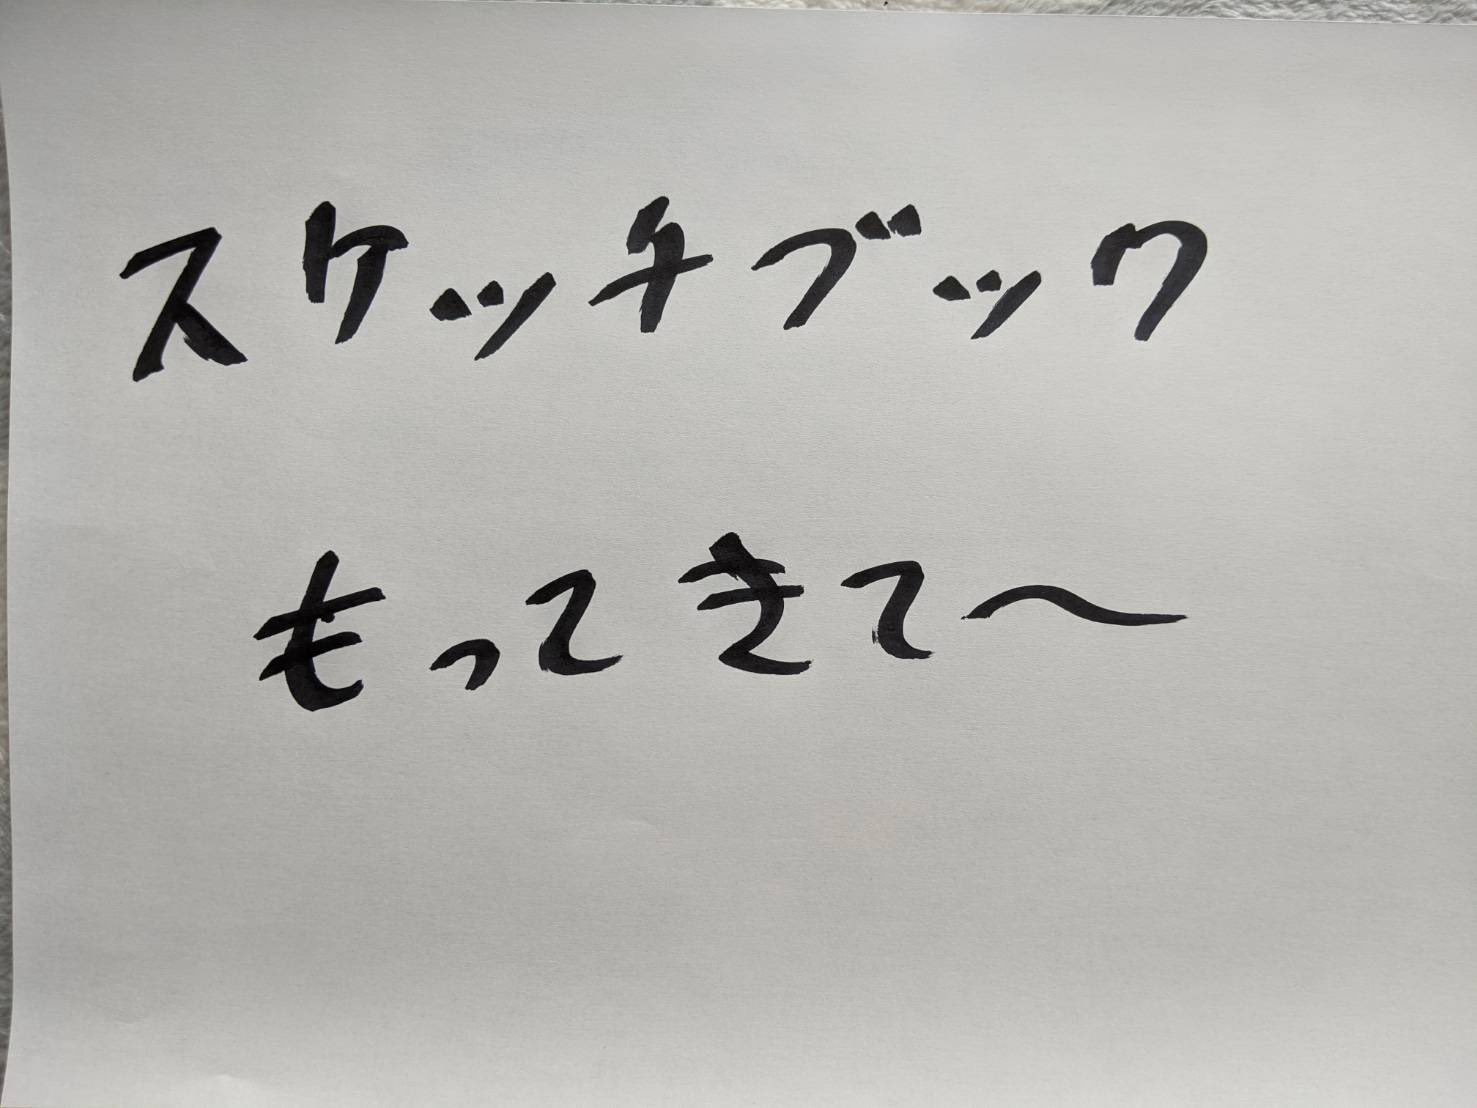 スケッチブック
もってきて〜